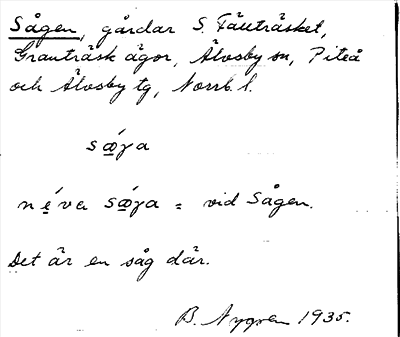 Sågen, gårdar S. Fälträsket,
Granträsk ägor, Älvsby sn, Piteå
och Älvsby tg, Norrb. l.
sǿ̱ɣa
né̱va sǿ̱ɣa = vid Sågen.
Det är en såg där.
B. Nygren 1935.